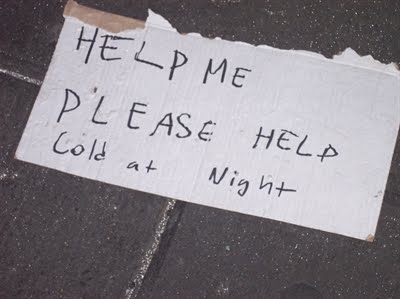 HELP ME
PLEASE HELP
Cold at Night